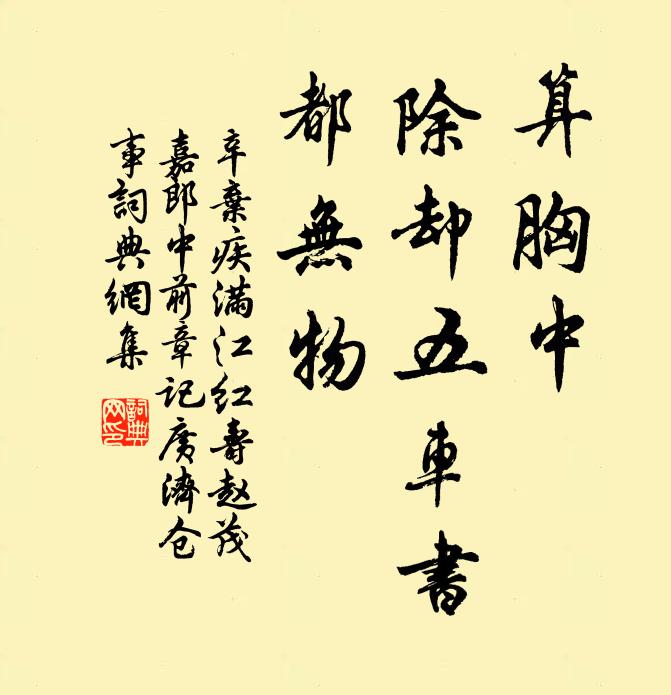 算胸中
除却五車書
都無物
辛棄疾滿江红壽赵茂
嘉郎中前章记廣濟仓
事詞典網集
詞典
网印